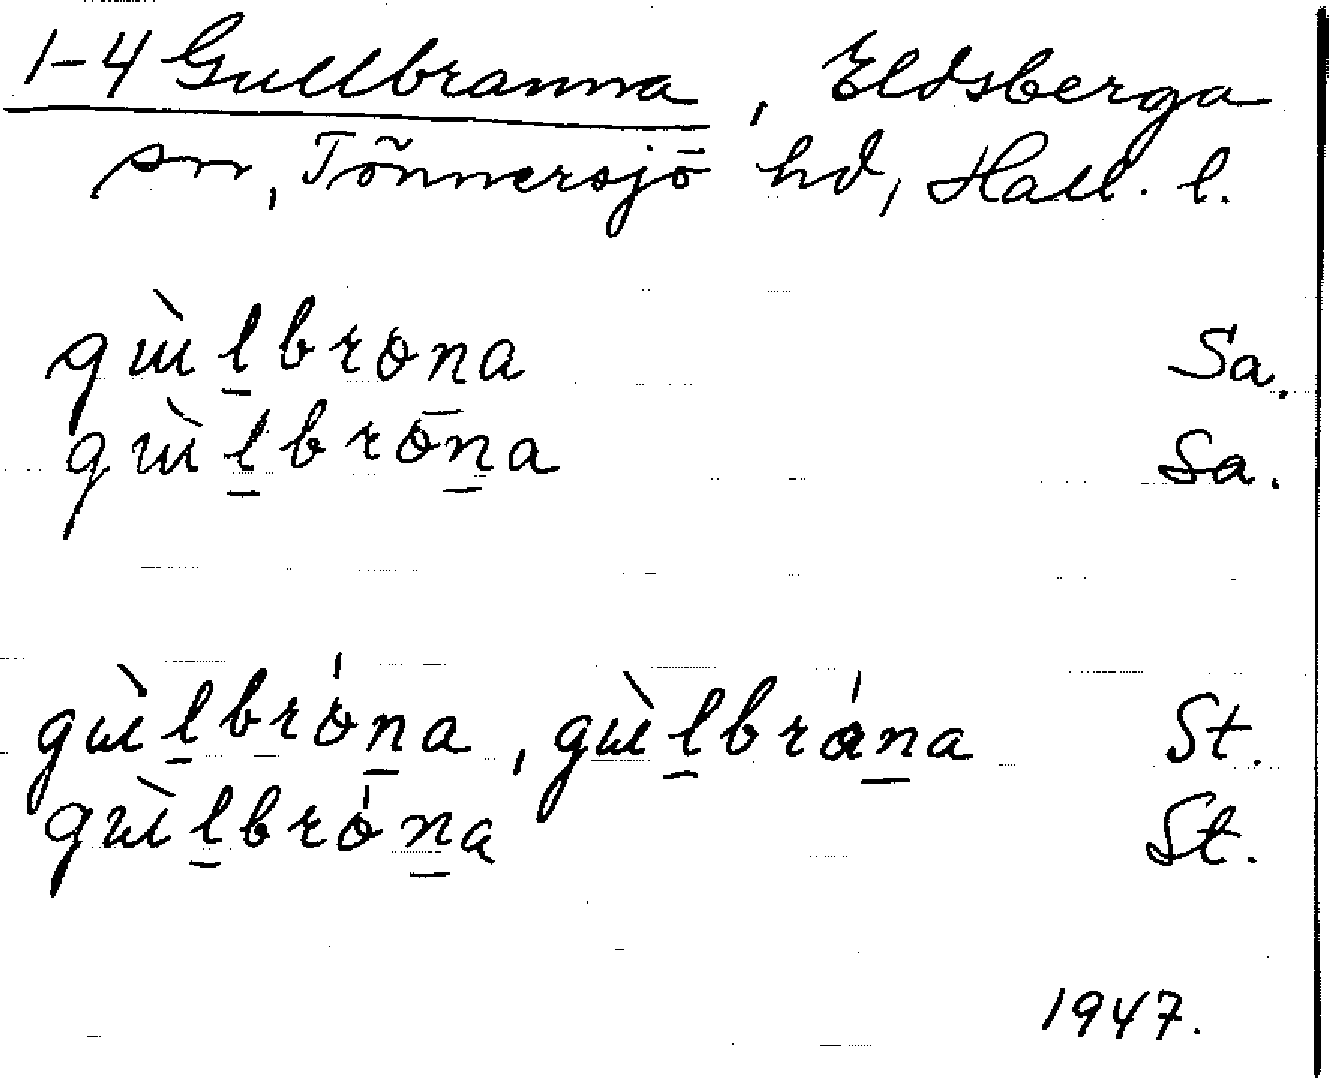 1-4 Gullbranna, Eldsberga
sn, Tönnersjö hd, Hall. l.
gùl̲bron̲a Sa.
gùl̲brōn̲a Sa.
gùl̲brón̲a, gùl̲brán̲a St.
gùl̲brón̲a St.
1947.